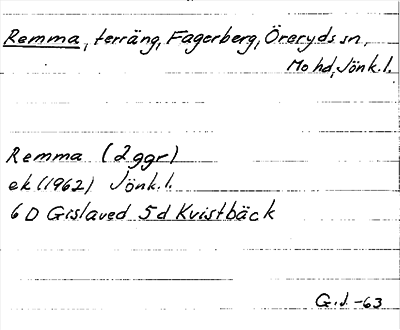 Remma, terräng, Fagerberg, Öreryds sn,
Mo hd, Jönk.l.
Remma (2ggr)
ek (1962) Jönk.l.
6D Gislaved 5d Kvistbäck
G.J. -63